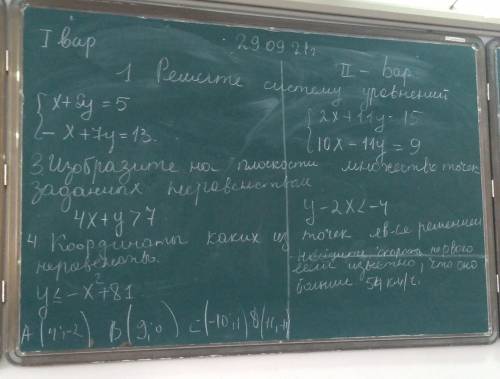 I вар
29.09.21г
1 Решите систему уравнений
II - вар
x+5y=5
-x+7y=13.
2x+11y=15
10x-11y=9
3. Изобразите на плоскости множество точек
заданных неравенством
4x+y>7
y-2x<-4
4. Координаты каких из точек яв-ся решением
неравенства.
y≤-x²+81
найдите скорость первого
если известно, что оно
больше 54км/ч.
A(4;-2), B(9;0) C(-10;1)